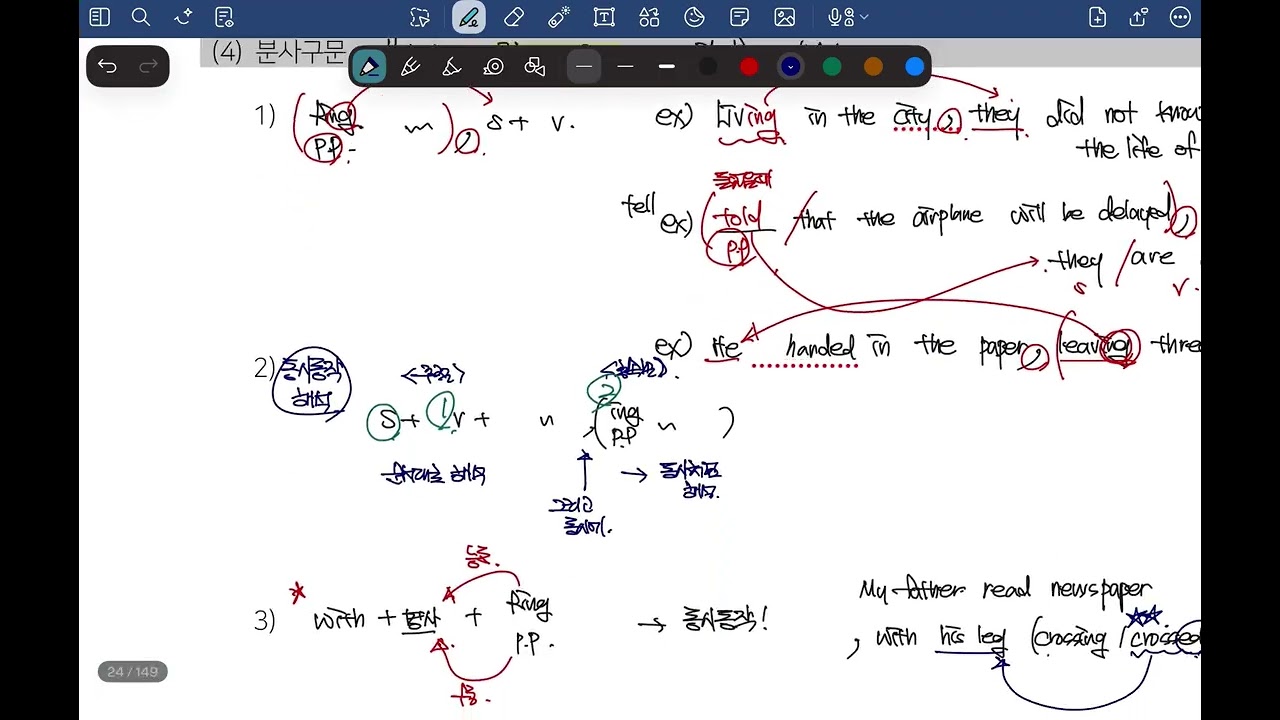 (4) 분사구문
1) (ing ~ ), S + V.
P.P
ex) Living in the city, they did not know
the life of
들었을때
tell ex) (told / that the airplane will be delayed),
P.P
they / are
S V.
ex) He handed in the paper, (leaving three
2) 동시동작 해석
<주절> <종속절>.
2
S + 1 V + ~ , (ing ~ )
P.P
순서대로 해석 → 동시치료 해석.
그리고 동시에.
능동.
3) * with + 명사 + ing → 동시동작!
P.P.
수동.
My father read newspaper
, with his leg (crossing / crossed
24 / 149